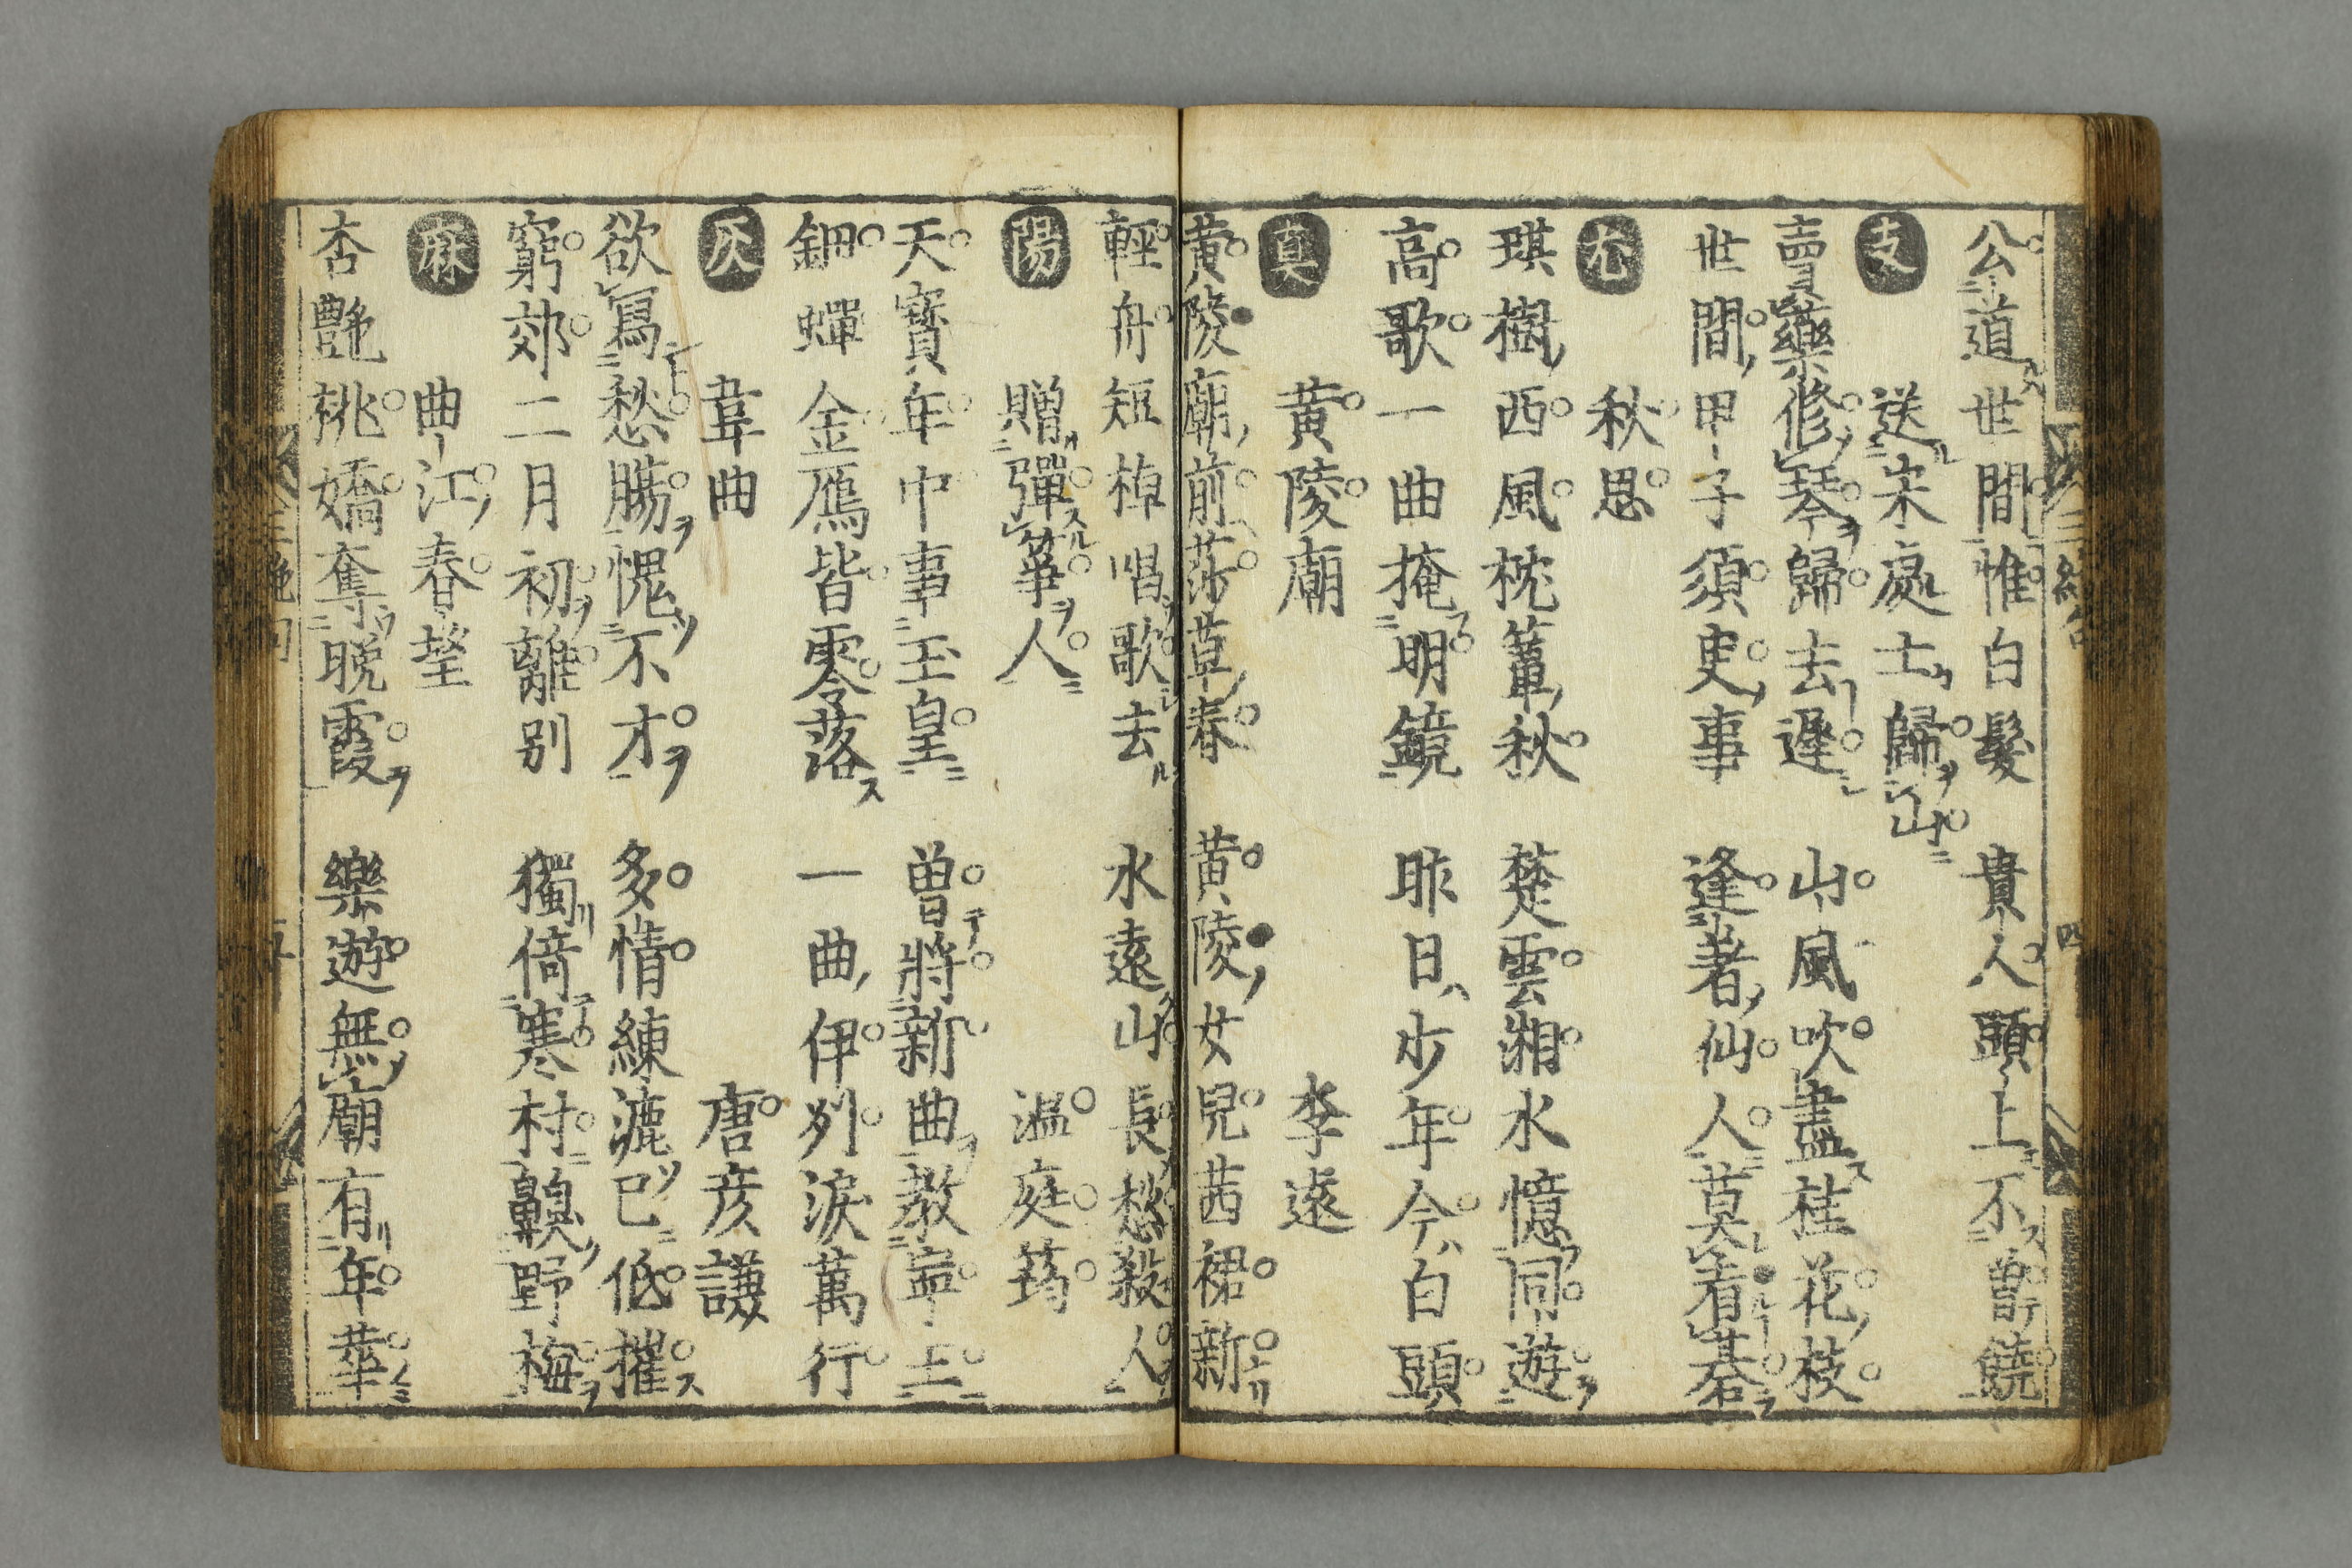 公道世間惟白髮 貴人頭上不曾饒
支 送宋處士歸山
賣藥修琴歸去遲 山風吹盡桂花枝
世間甲子須臾事 逢著仙人莫看碁
尤 秋思
琪樹西風枕簟秋 楚雲湘水憶同遊
高歌一曲掩明鏡 昨日少年今白頭
真 黃陵廟 李遠
黃陵廟前莎草春 黃陵女兒茜裙新
輕舟短棹唱歌去 水遠山長愁殺人
陽 贈彈箏人 溫庭筠
天寶年中事玉皇 曾將新曲教寧王
鈿蟬金鴈皆零落 一曲伊州淚萬行
灰 韋曲 唐彥謙
欲寫愁腸愧不才 多情練漉已低摧
窮郊二月初離別 獨倚寒村齅野梅
麻 曲江春望
杏艷桃嬌奪晚霞 樂遊無廟有年華